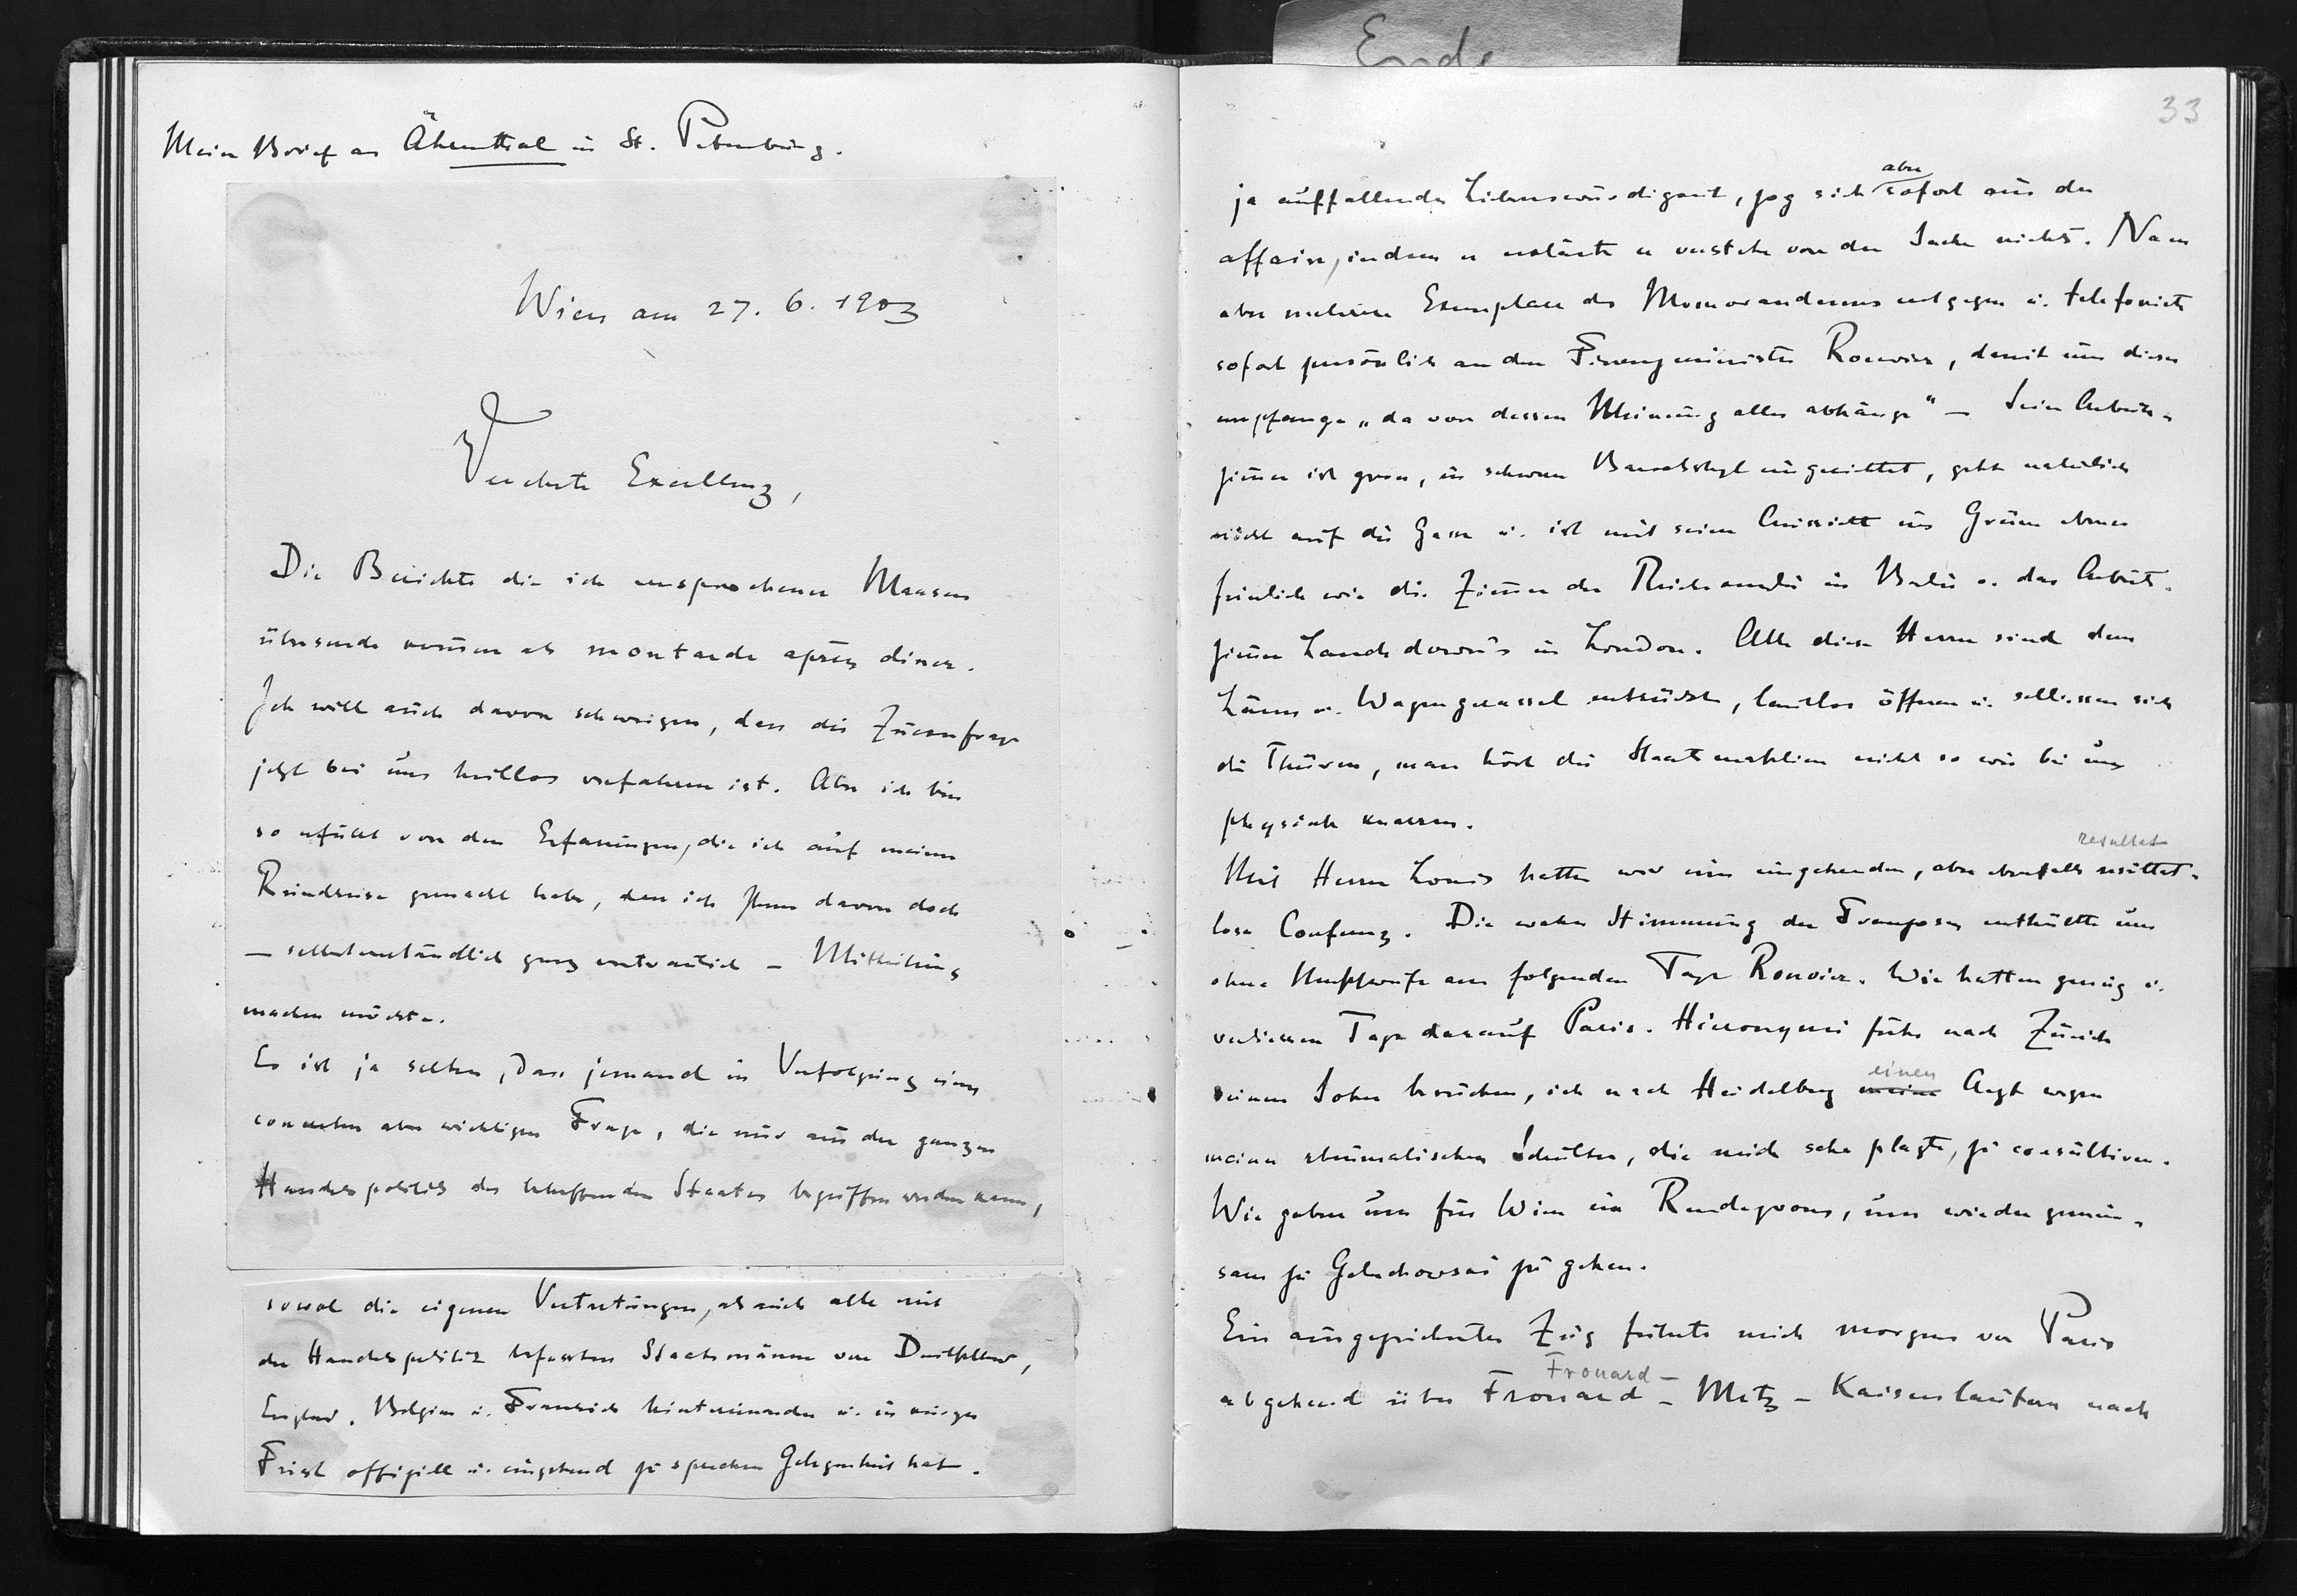 Mein Brief an Ährenthal in St. Petersburg.
Wien am 27. 6. 1903
Verehrte Excellenz,
Die Berichte die ich versprochener Maasen
übersende kommen als moutarde après diner.
Ich will auch davon schweigen, dass die Zuckerfrage
jetzt bei uns heillos verfahren ist. Aber ich bin
so erfüllt von den Erfarungen, die ich auf meiner
Rundreise gemacht habe, dass ich Ihnen davon doch
— selbstverständlich ganz vertraulich — Mittheilung
machen möchte.
Es ist ja selten, dass jemand in Verfolgung einer
concreten aber wichtigen Frage, die nur aus der ganzen
Handelspolitik des betreffenden Staates begriffen werden kann,
sowol die eigenen Vertretungen, als auch alle mit
der Handelspolitik befassten Staatsmänner von Deutschland,
England, Belgien u. Frankreich hintereinander u. in kurzer
Frist offiziell u. eingehend zu sprechen Gelegenheit hat.
Ende
33
ja auffallender Liebenswürdigkeit, zog sich aber sofort aus der
affaire, indem er erklärte er verstehe von der Sache nichts. Nam
aber mehrere Exemplare des Memorandums entgegen u. telefonirte
sofort persönlich an den Finanzminister Rouvier, damit uns dieser
empfange „da von dessen Meinung alles abhänge“ — Sein Arbeits-
zimmer ist gross, in schwerem Barockstyl eingerichtet, geht natürlich
nicht auf die Gasse u. ist mit seiner Aussicht ins Grüne ebenso
feierlich wie die Zimmer der Reichskanzlei in Berlin o. das Arbeits-
zimmer Landsdown's in London. Alle diese Herren sind dem
Lärm u. Wagengerassel entrückt, lautlos öffnen u. schliessen sich
die Thüren, man hört die Staatsmaschine nicht so wie bei uns
physisch knarren.
Mit Herrn Louis hatten wir eine eingehende, aber ebenfalls resultat- resultat
lose Conferenz. Die wahre Stimmung der Franzosen enthüllte uns
ohne Umschweife am folgenden Tage Rouvier. Wir hatten genug u.
verliessen Tags darauf Paris. Hieronymi fuhr nach Zürich
seinen Sohn besuchen, ich nach Heidelberg meine einen Arzt wegen
meiner rheumatischen Schulter, die mich sehr plagte, zu consultiren.
Wir gaben uns für Wien ein Rendezvous, um wieder gemein-
sam zu Goluchowski zu gehen.
Ein ausgezeichneter Zug führte mich morgens von Paris
Frouard –
abgehend über Frouard – Metz – Kaiserslautern nach